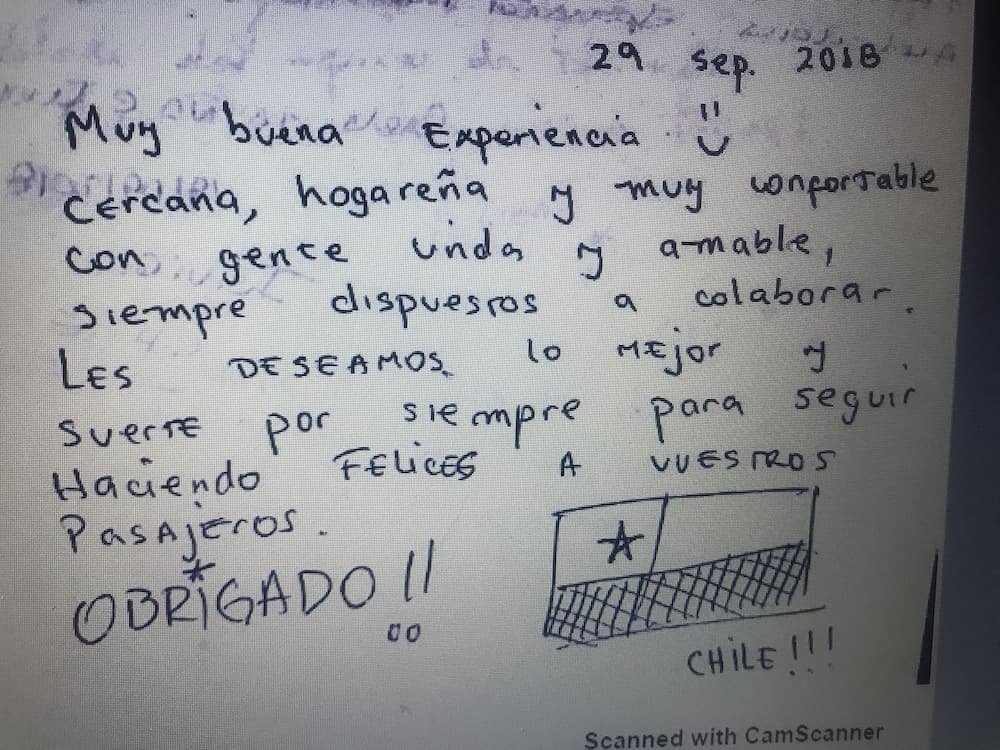 29 sep. 2018
Muy buena Experiencia
cercana, hogareña y muy confortable
con gente linda y amable,
siempre dispuestos a colaborar.
LES DESEAMOS lo MEjor y
suerte por siempre para seguir
Haciendo FELICES A VUESTROS
PasAjeros.
OBRIGADO!!
CHILE!!!
Scanned with CamScanner